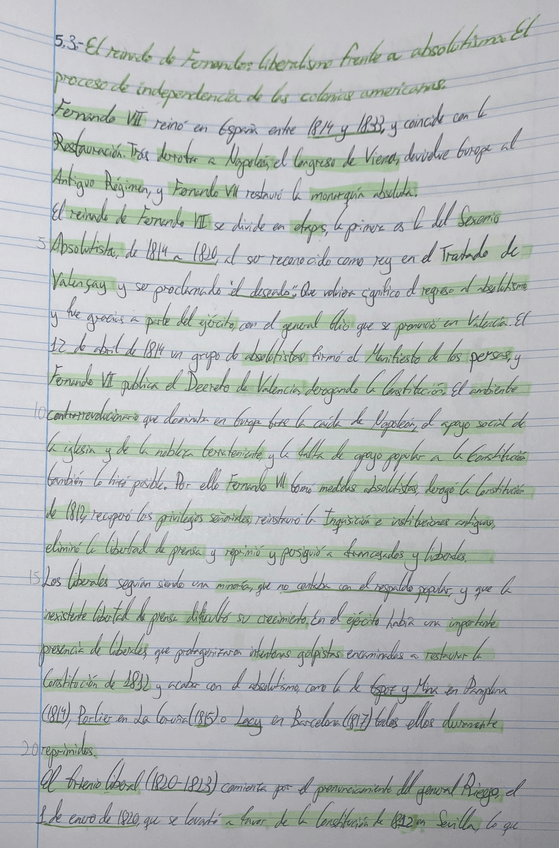 5.3.- El reinado de Fernando: liberalismo frente a absolutismo. El
proceso de independencia de las colonias americanas.
Fernando VII reinó en España entre 1814 y 1833, y coincide con la
Restauración. Tras derrotar a Napoleón, el Congreso de Viena, devuelve Europa al
Antiguo Régimen, y Fernando VII restauró la monarquía absoluta.
El reinado de Fernando VII se divide en etapas, la primera es la del Sexenio
5 Absolutista, de 1814 a 1820, al ser reconocido como rey en el Tratado de
Valençay y ser proclamado "el deseado". Que volviera significó el regreso al absolutismo
y fue gracias a parte del ejército, con el general Elío que se pronunció en Valencia. El
12 de abril de 1814 un grupo de absolutistas firmó el Manifiesto de los persas, y
Fernando VII publica el Decreto de Valencia, derogando la Constitución. El ambiente
10 contrarrevolucionario que dominaba en Europa tras la caída de Napoleón, el apoyo social de
la iglesia y de la nobleza terrateniente y la falta de apoyo popular a la Constitución
también lo hizo posible. Por ello Fernando VII tomó medidas absolutistas, derogó la Constitución
de 1812, recuperó los privilegios señoriales, reinstauró la Inquisición e instituciones antiguas,
eliminó la libertad de prensa y reprimió y persiguió a afrancesados y liberales.
15 Los liberales seguían siendo una minoría, que no contaba con el respaldo popular, y que la
inexistente libertad de prensa dificultó su crecimiento. En el ejército había una importante
presencia de liberales, que protagonizaron intentonas golpistas encaminadas a restaurar la
Constitución de 1812 y acabar con el absolutismo, como la de Espoz y Mina en Pamplona
(1814), Porlier en La Coruña (1815) o Lacy en Barcelona (1817) todos ellos duramente
20 reprimidos.
El trienio liberal (1820-1823) comienza por el pronunciamiento del general Riego, el
1 de enero de 1820, que se levantó a favor de la Constitución de 1812 en Sevilla, lo que